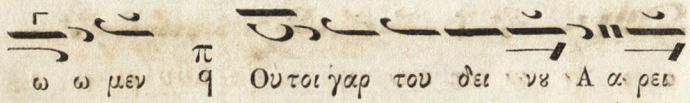 ω ω μεν π ϥ Ούτοι γαρ του δει νȣ Α α ρει